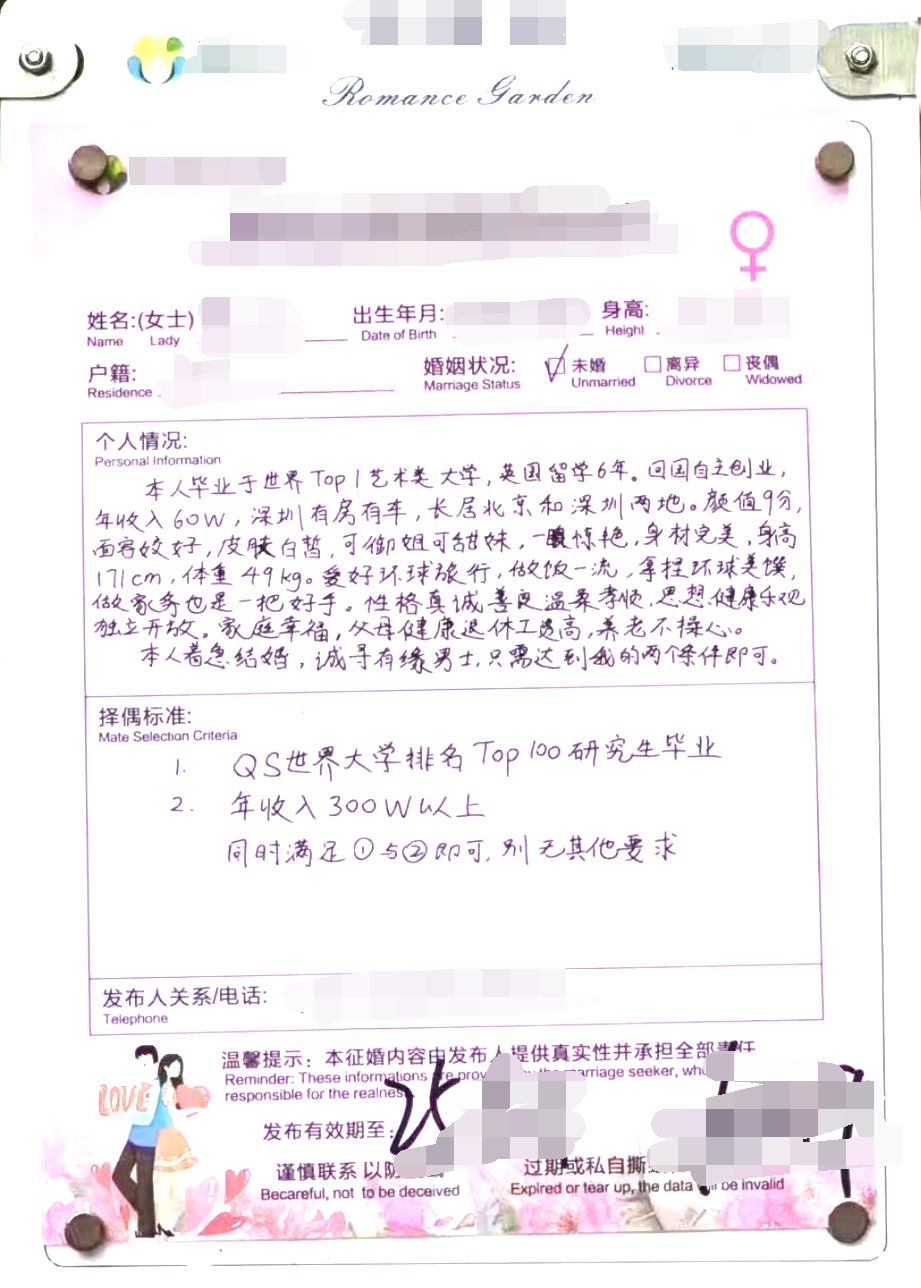 Romance Garden
姓名:(女士) 出生年月: 身高:
Name Lady Date of Birth Height
户籍: 婚姻状况: 未婚 离异 丧偶
Residence Marriage Status Unmarried Divorce Widowed
个人情况:
Personal Information
本人毕业于世界Top1艺术类大学,英国留学6年。回国自主创业,
年收入60W,深圳有房有车,长居北京和深圳两地。颜值9分,
面容姣好,皮肤白皙,可御姐可甜妹,一眼惊艳,身材完美,身高
171cm,体重49kg。爱好环球旅行,做饭一流,拿捏环球美馔,
做家务也是一把好手。性格真诚善良温柔孝顺,思想健康乐观
独立开放。家庭幸福,父母健康退休工资高,养老不操心。
本人着急结婚,诚寻有缘男士,只需达到我的两个条件即可。
择偶标准:
Mate Selection Criteria
1. QS世界大学排名Top100研究生毕业
2. 年收入300W以上
同时满足①与②即可,别无其他要求
发布人关系/电话:
Telephone
温馨提示：本征婚内容由发布人提供真实性并承担全部责任
LOVE Reminder: These informations are by the marriage seeker,
responsible for the realness
发布有效期至:
谨慎联系 以防 过期或私自撕
Becareful, not to be deceived Expired or tear up, the data will be invalid